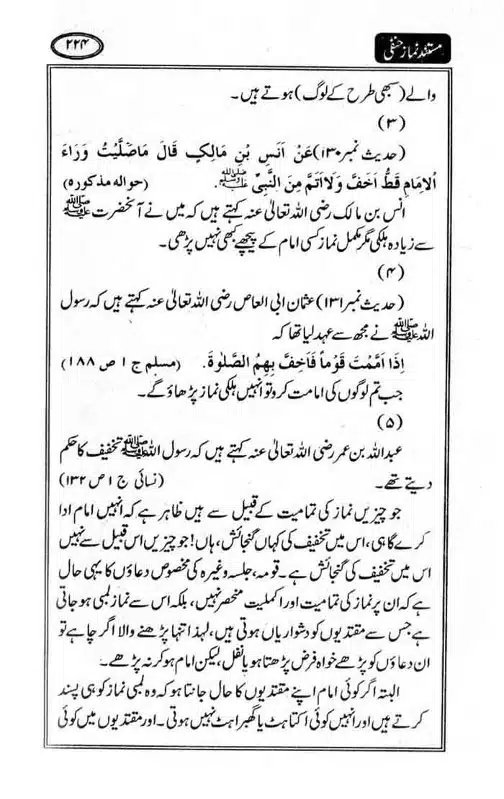 مستند نماز حنفی
۲۲۴
والے (سبھی طرح کے لوگ) ہوتے ہیں۔
(۳)
(حدیث نمبر ۱۳۰) عَنْ اَنَسِ بْنِ مَالِکٍ قَالَ مَاصَلَّیْتُ وَرَاءَ
الْاِمَامِ قَطُّ اَخَفَّ وَلَا اَتَمَّ مِنَ النَّبِیِّ ﷺ۔ (حوالہ مذکورہ)
انس بن مالک رضی اللہ تعالیٰ عنہ کہتے ہیں کہ میں نے آنحضرت ﷺ
سے زیادہ ہلکی مگر مکمل نماز کسی امام کے پیچھے کبھی نہیں پڑھی۔
(۴)
(حدیث نمبر ۱۳۱) عثمان ابی العاص رضی اللہ تعالیٰ عنہ کہتے ہیں کہ رسول
اللہ ﷺ نے مجھ سے عہد لیا تھا کہ
اِذَا اَمَمْتَ قَوْماً فَاَخِفَّ بِهِمُ الصَّلٰوةَ۔ (مسلم ج ۱ ص ۱۸۸)
جب تم لوگوں کی امامت کرو تو انہیں ہلکی نماز پڑھاؤ گے۔
(۵)
عبداللہ بن عمر رضی اللہ تعالیٰ عنہ کہتے ہیں کہ رسول اللہ ﷺ تخفیف کا حکم
دیتے تھے۔ (نسائی ج ۱ ص ۱۳۲)
جو چیزیں نماز کی تمامیت کے قبیل سے ہیں ظاہر ہے کہ انہیں امام ادا
کرے گا ہی، اس میں تخفیف کی کہاں گنجائش، ہاں! جو چیزیں اس قبیل سے نہیں
اس میں تخفیف کی گنجائش ہے۔ قومہ، جلسہ وغیرہ کی مخصوص دعاؤں کا یہی حال
ہے کہ ان پر نماز کی تمامیت اور اکملیت منحصر نہیں، بلکہ اس سے نماز لمبی ہو جاتی
ہے جس سے مقتدیوں کو دشواریاں ہوتی ہیں، لہٰذا تنہا پڑھنے والا اگر چاہے تو
ان دعاؤں کو پڑھے خواہ فرض پڑھتا ہو یا نفل، لیکن امام ہو کر نہ پڑھے۔
البتہ اگر کوئی امام اپنے مقتدیوں کا حال جانتا ہو کہ وہ لمبی نماز کو ہی پسند
کرتے ہیں اور انہیں کوئی اکتاہٹ یا گھبراہٹ نہیں ہوتی۔ اور مقتدیوں میں کوئی